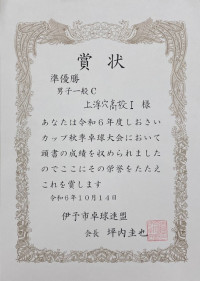 賞状
準優勝
男子一般C
上浮穴高校Ⅰ 様
あなたは令和6年度しおさい
カップ秋季卓球大会において
頭書の成績を収められました
のでここにその栄誉をたたえ
これを賞します
令和6年10月14日
伊予市卓球連盟
会長 坪内圭也